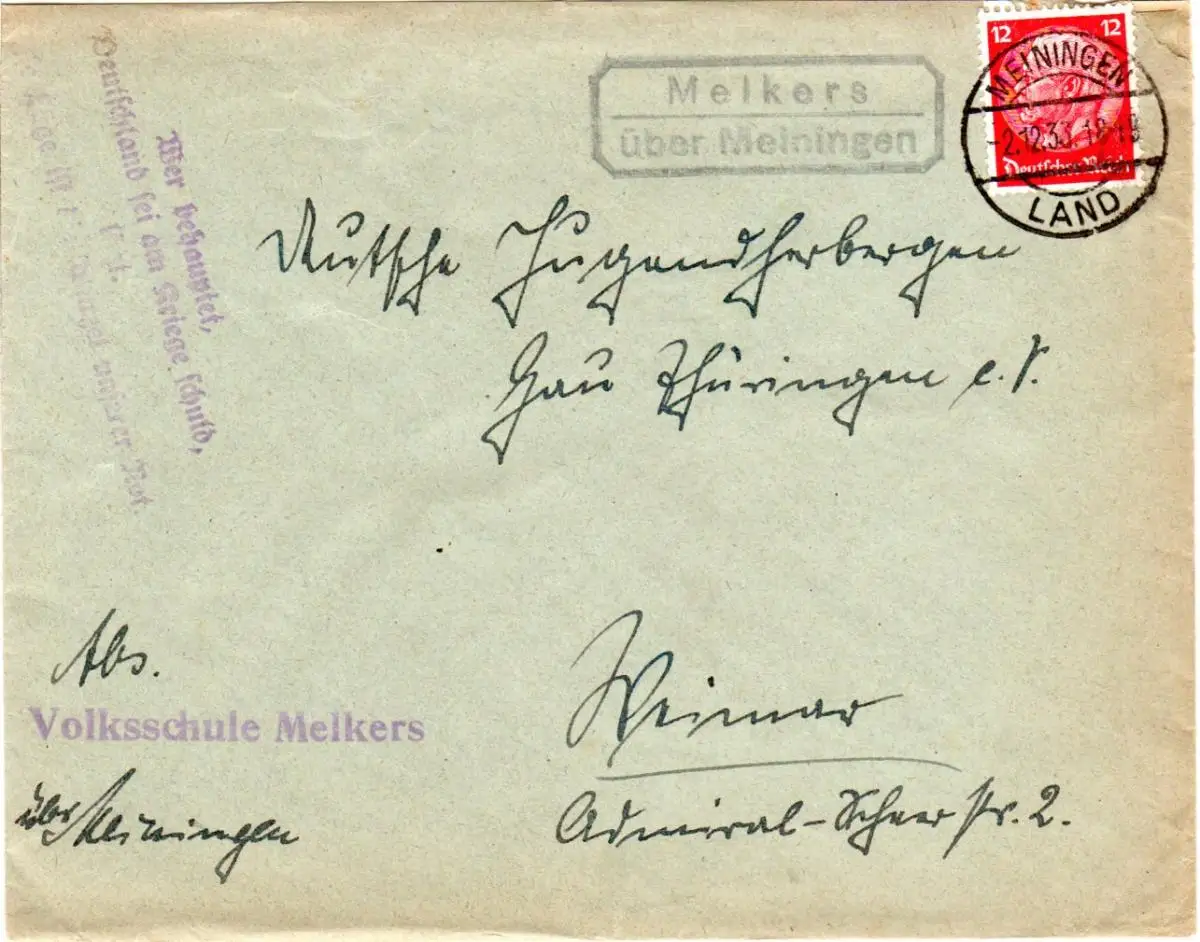 Melkers
über Meiningen
12 12
Deutsches Reich
MEININGEN
-2.12.33.18-19
LAND
Wer behauptet,
Deutschland sei am Kriege schuld,
lügt.
Die Lüge ist Wurzel unserer Not.
Deutsche Jugendherbergen
Gau Thüringen e.V.
Weimar
Admiral-Scheer str. 2.
Abs.
Volksschule Melkers
über Meiningen